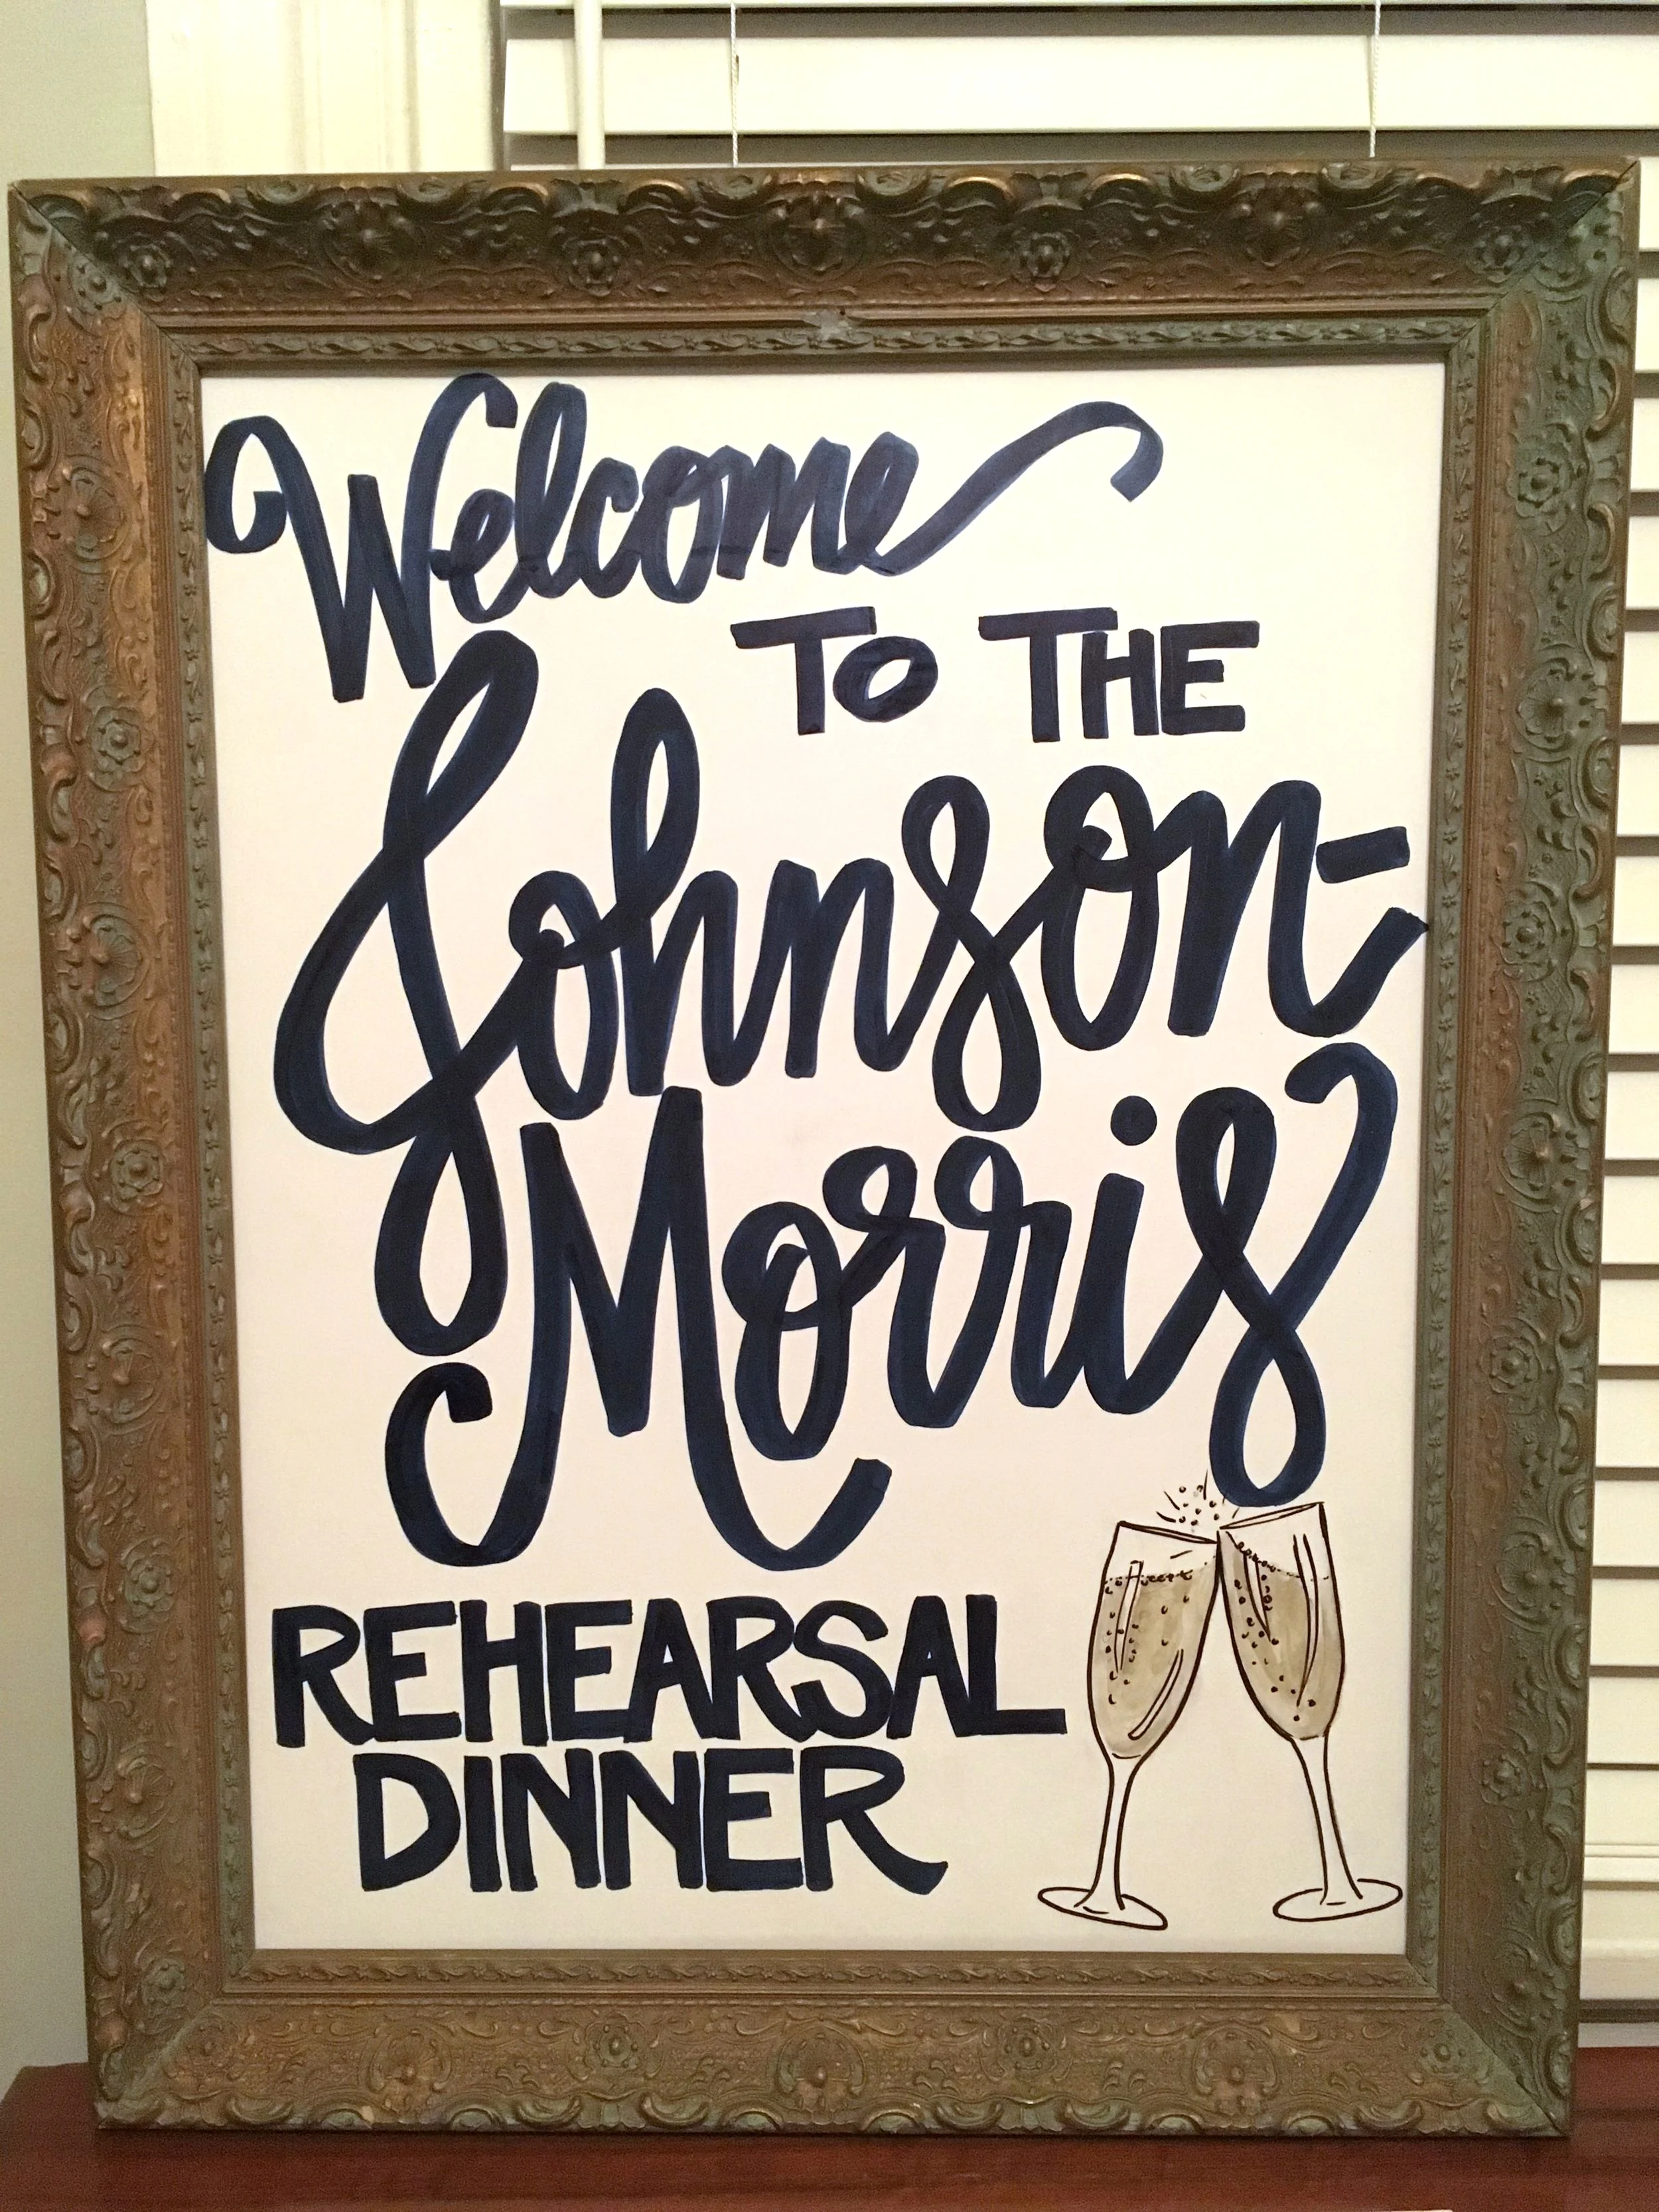 Welcome
TO THE
Johnson-
Morris
REHEARSAL
DINNER